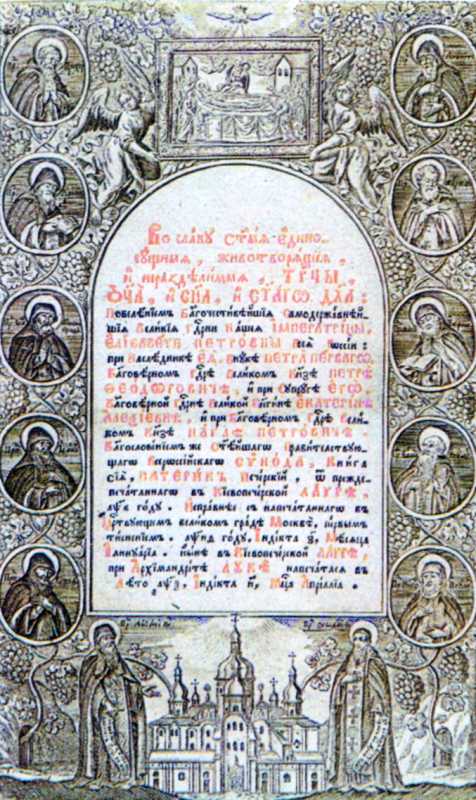 Во славу ст҃ыѧ едино-
сущныѧ, животворѧщїѧ,
и нераздѣлимыѧ, тр҃цы,
Ѻц҃а, и сн҃а, и ст҃агѡ дх҃а:
Повелѣнїемъ Благочестивѣйшїѧ Самодержавнѣй
шїѧ Великїѧ Гдр҃ни нашеѧ Імператрїцы,
Елїсаветъ Петровны всеѧ Рѡссїи:
при наслѣдникѣ Еѧ, внукѣ Петра Первагѡ,
Благовѣрномъ Гдр҃ѣ Великомъ Кнѧзѣ Петрѣ
Ѳеодоровичѣ, и при супругѣ Егѡ,
Благовѣрной Гдр҃нѣ Великой Кнѧгинѣ Екатерінѣ
Алеѯіевнѣ, и при Благовѣрномъ Гдр҃ѣ Вели-
комъ Кнѧзѣ Паѵлѣ Петровичѣ
Благословенїемъ же Ст҃ѣйшагѡ Правителствую-
щагѡ Всерѡссійскагѡ Сѵнода, Книга
сїѧ, Патерикъ Печерскїй, ѿ прежде-
печатаннагѡ въ Кїевопечерской Лаѵрѣ,
҂аѱв году. Исправнѣе съ напечатаннагѡ въ
Цр҃ствующемъ великомъ градѣ Москвѣ, первымъ
тисненїемъ, году, Індікта з, Мѣсѧца
Іаннуарїа. нынѣ въ Кїевопечерской Лаѵрѣ,
при Архїмандрітѣ Лукѣ напечатасѧ въ
лѣто ҂аѱѯ, Індікта и, Мц҃а Апрїллїа.